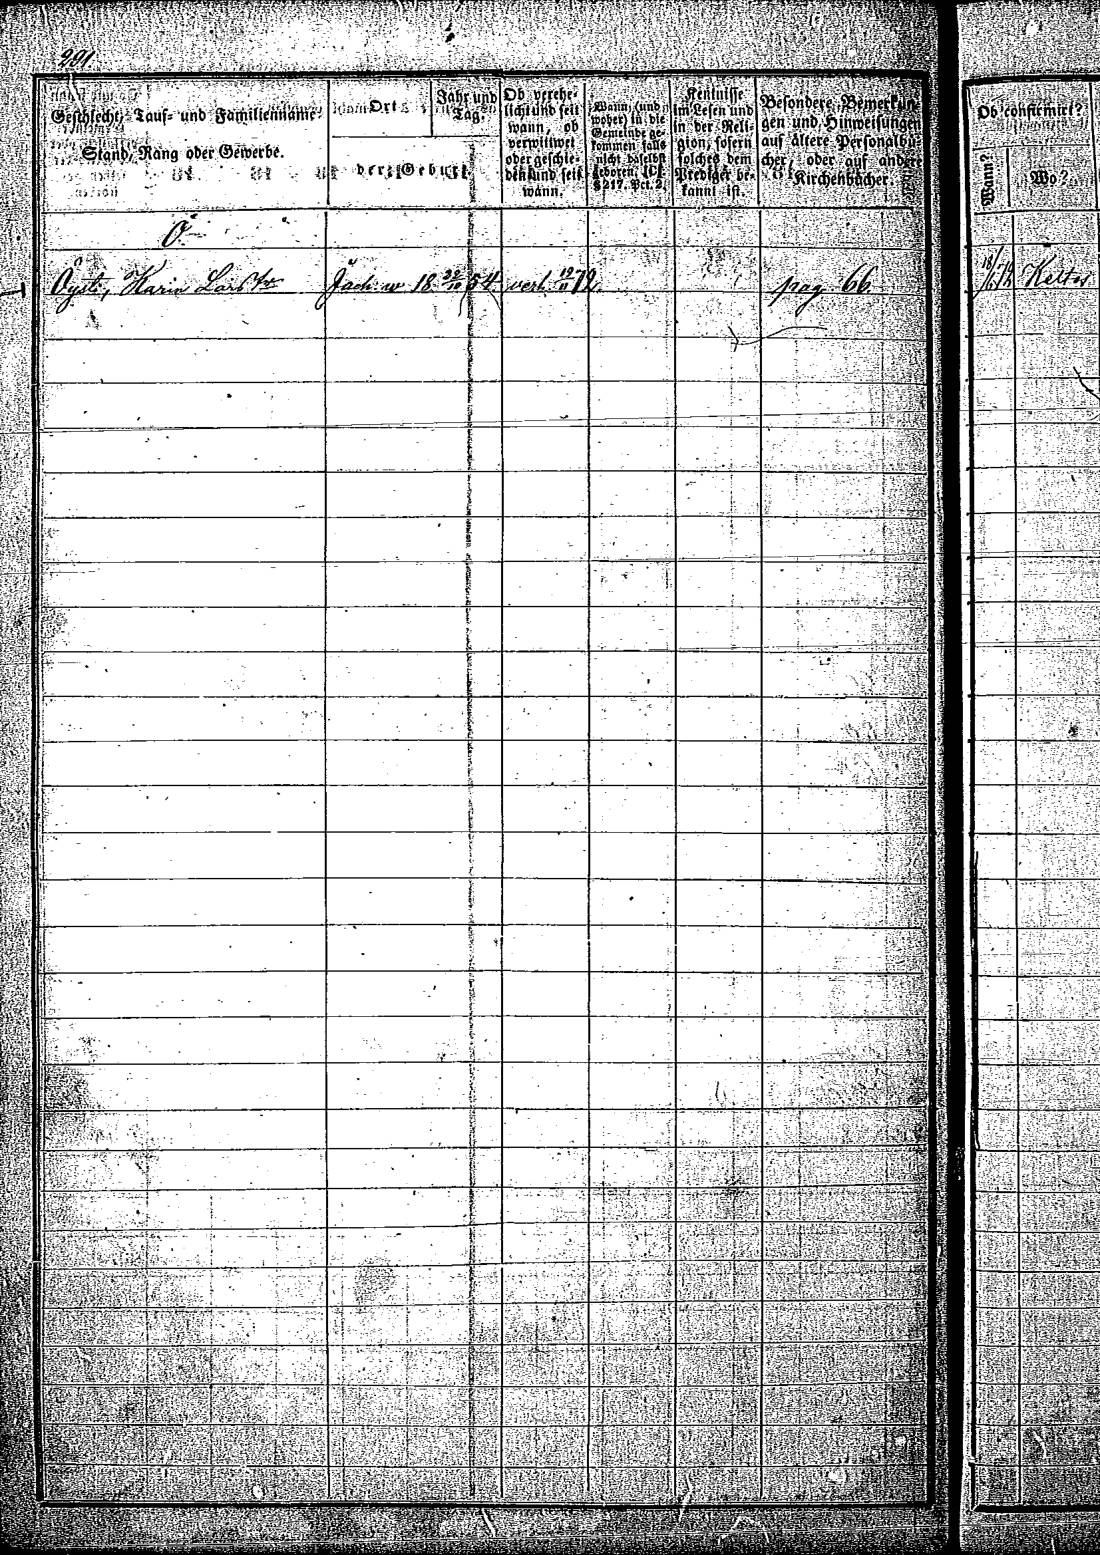 291
Geschlecht, Tauf- und Familienname.
Stand, Rang oder Gewerbe.
Ort
Jahr und
Tag.
der Geburt
Ob verehe-
licht und seit
wann, ob
verwittwet
oder geschie-
den und seit
wann.
Wann (und
woher) in die
Gemeinde ge-
kommen falls
nicht daselbst
geboren.
§217. Pct. 2.
Kentnisse
im Lesen und
in der Reli-
gion, sofern
solches dem
Prediger be-
kannt ist.
Besondere Bemerkun-
gen und Hinweisungen
auf ältere Personalbü-
cher, oder auf andere
Kirchenbücher.
Ob confirmirt?
Wann?
Wo?
Ö
Öysti, Maria Lars 18 22/10 54 verh. 12/11 72 pag 66